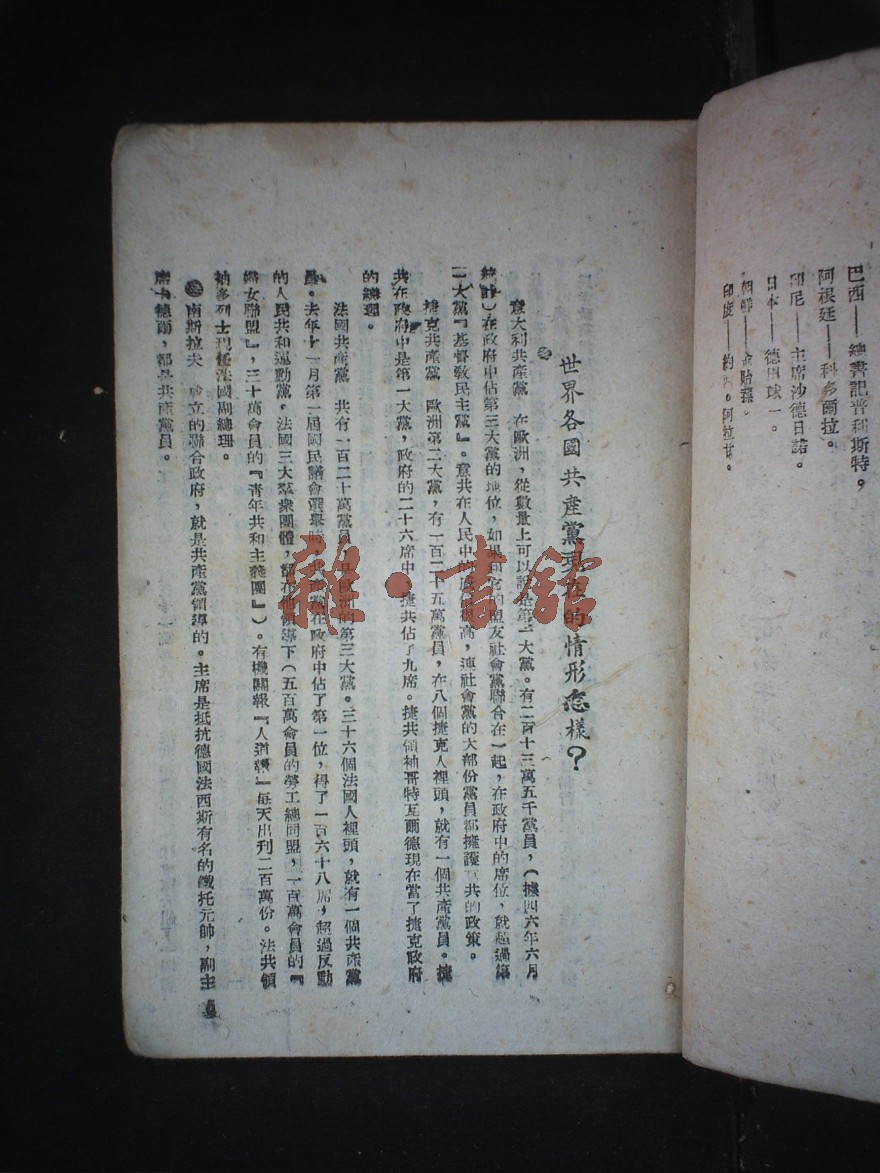 巴西——總書記普利斯特。
阿根廷——科多爾拉。
印尼——主席沙德日諾。
日本——德田球一。
朝鮮——金
印度——約西。阿拉甘。
世界各國共產黨現在的情形怎樣？
意大利共產黨　在歐洲，從數量上可以說是第一大黨。有二百十三萬五千黨員，（據四六年六月
統計）在政府中佔第三大黨的地位，如果和它的盟友社會黨聯合在一起，在政府中的席位，就超過第
二大黨『基督敎民主黨』。意共在人民中的威信很高，連社會黨的大部份黨員都擁護意共的政策。
捷克共產黨　歐洲第二大黨，有一百二十五萬黨員，在八個捷克人裡頭，就有一個共產黨員。捷
共在政府中是第一大黨，政府的二十六席中，捷共佔了九席。捷共領袖哥特瓦爾德現在當了捷克政府
的總理。
法國共產黨　共有一百二十萬黨員，是歐洲的第三大黨。三十六個法國人裡頭，就有一個共產黨
員。去年十一月第一屆國民議會選舉時，共產黨在政府中佔了第一位，得了一百六十八席，超過反動
的人民共和運動黨。法國三大羣衆團體，都在他領導下（五百萬會員的勞工總同盟，一百萬會員的『
婦女聯盟』，三十萬會員的『青年共和主義團』）。有機關報『人道報』每天出刊二百萬份。法共領
袖多列士現任法國副總理。
南斯拉夫　成立的聯合政府，就是共產黨領導的。主席是抵抗德國法西斯有名的鐵托元帥，副主
席卡德爾，都是共產黨員。
雜·書館